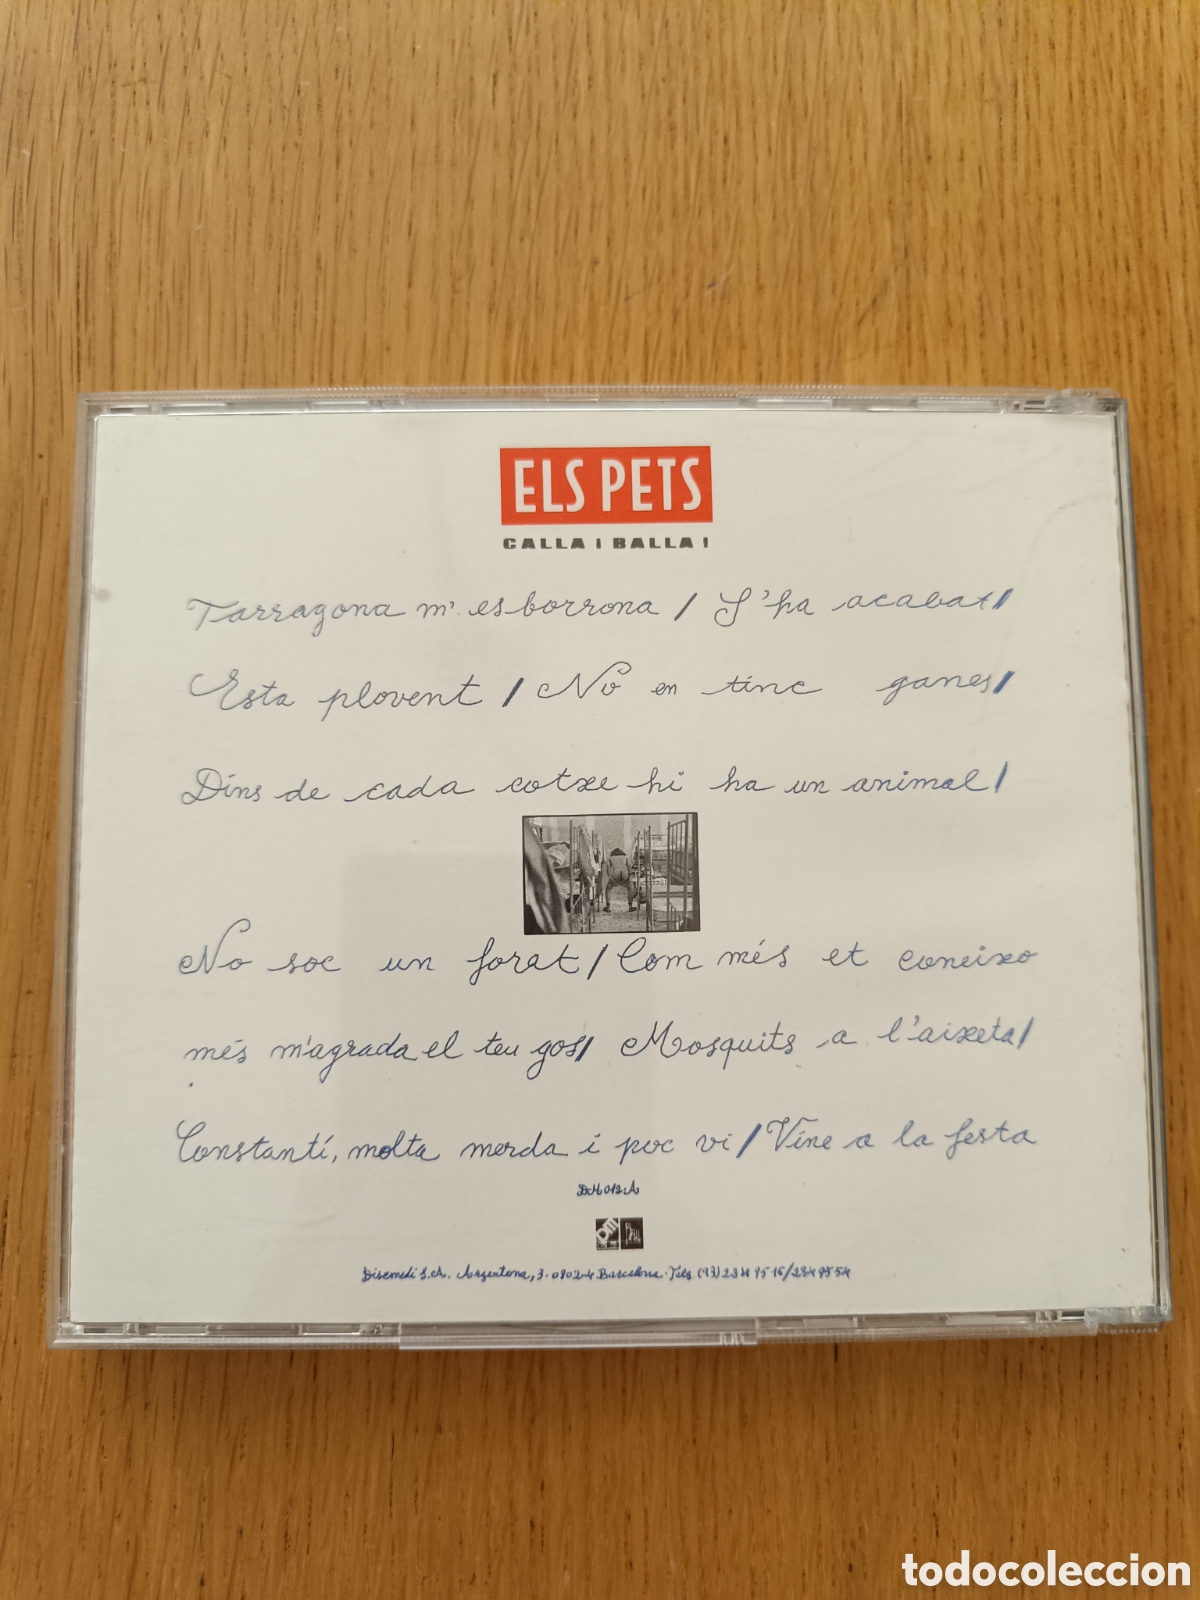 ELS PETS
CALLA i BALLA!
Tarragona m'esborrona / S'ha acabat/
Esta plovent / No en tinc ganes/
Dins de cada cotxe hi ha un animal/
No soc un forat / Com més et coneixo
més m'agrada el teu gos/ Mosquits a l'aixeta/
Constantí, molta merda i poc vi / Vine a la festa
DM 012.A
DM
Discmedi S.A. Argentona, 3. 08024 Barcelona. Tels. (93)
todocoleccion